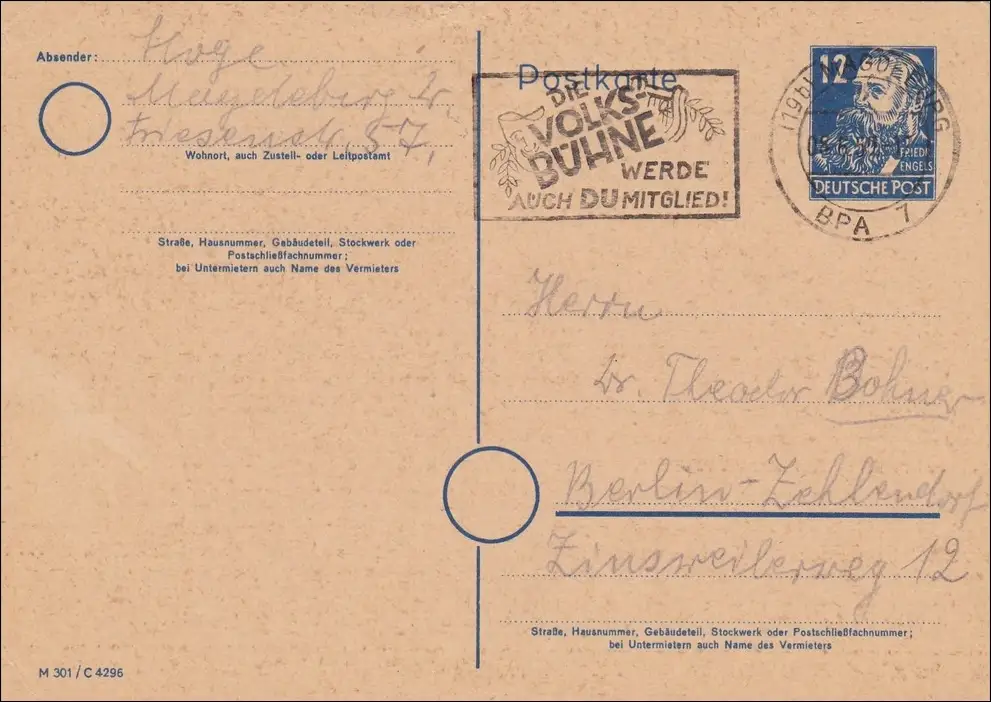 Absender: Hoge
Magdeburg
Friesenstr. 57,
Wohnort, auch Zustell- oder Leitpostamt
Straße, Hausnummer, Gebäudeteil, Stockwerk oder
Postschließfachnummer;
bei Untermietern auch Name des Vermieters
M 301 / C 4296
Postkarte
DIE
VOLKS-
BÜHNE
WERDE
AUCH DU MITGLIED!
12
FRIEDR.
ENGELS
DEUTSCHE POST
(19b) MAGDEBURG
BPA 7
Herrn
Dr. Theodor Bohner
Berlin-Zehlendorf
Zinsweilerweg 12
Straße, Hausnummer, Gebäudeteil, Stockwerk oder Postschließfachnummer;
bei Untermietern auch Name des Vermieters